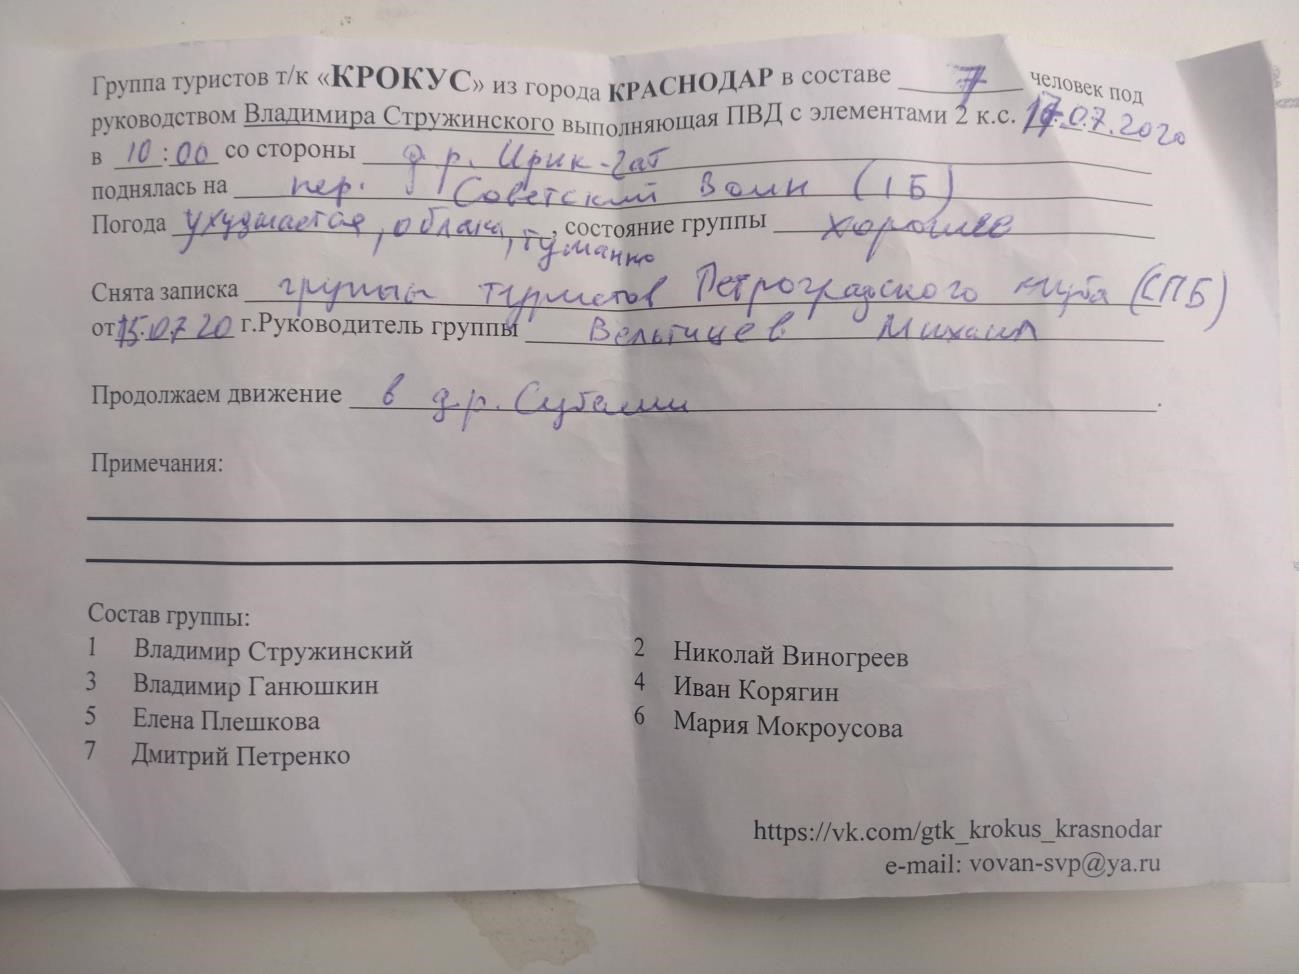 Группа туристов т/к «КРОКУС» из города КРАСНОДАР в составе 7 человек под
руководством Владимира Стружинского выполняющая ПВД с элементами 2 к.с. .07.2020
в 10:00 со стороны д.р. Ирик-Чат
поднялась на пер. Советский Воин (1Б)
Погода ухудшается, облака, туманно, состояние группы хорошее
Снята записка группы туристов Петроградского клуба (СПБ)
от 15.07.20 г.Руководитель группы Вельтищев Михаил
Продолжаем движение в д.р. Субаши.
Примечания:
Состав группы:
1 Владимир Стружинский 2 Николай Виногреев
3 Владимир Ганюшкин 4 Иван Корягин
5 Елена Плешкова 6 Мария Мокроусова
7 Дмитрий Петренко
https://vk.com/gtk_krokus_krasnodar
e-mail: vovan-svp@ya.ru